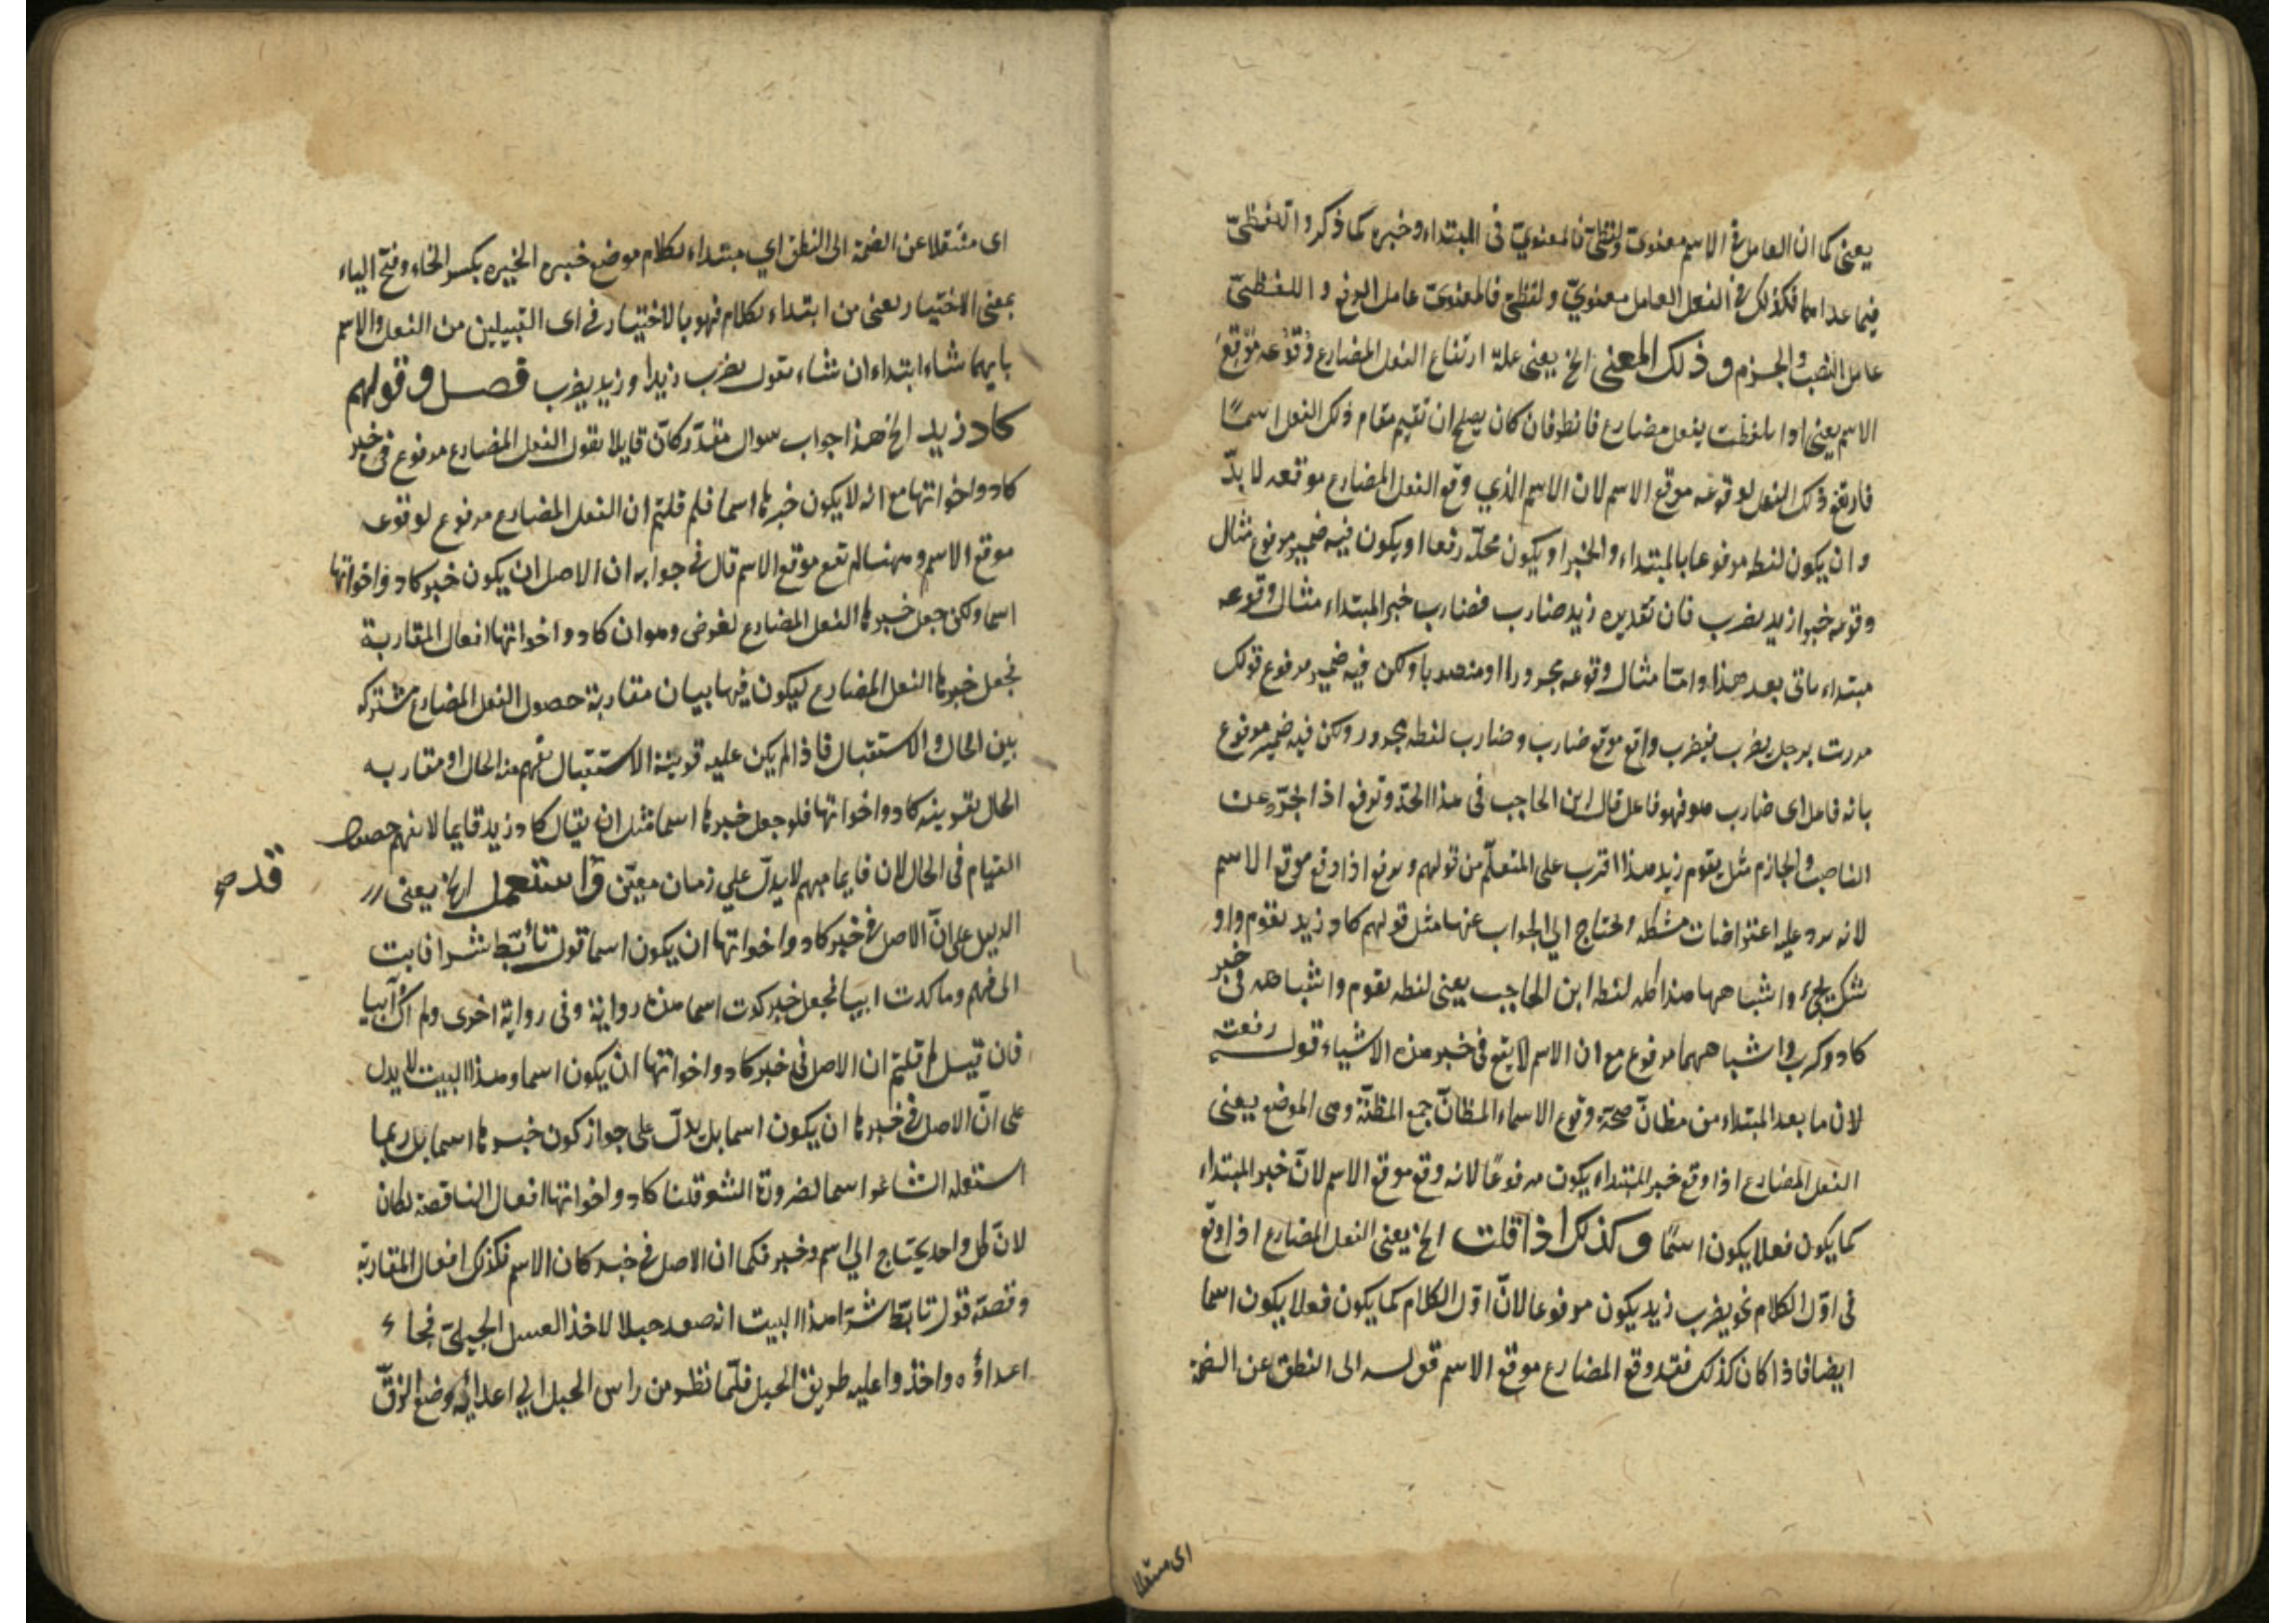 يعنى كما ان العامل فى الاسم معنوىّ ولفظىّ فالمعنوىّ فى المبتداء وخبره كما ذكر واللفظىّ
فيما عداهما فكذلك فى الفعل العامل معنوىّ ولفظىّ فالمعنوىّ عامل الرفع واللفظىّ
عامل النصب والجزم وذلك المعنى الخ يعنى علة ارتفاع الفعل المضارع وُقُوعُه مَوْقِعَ
الاسم يعنى اذا تلفظت بفعل مضارع فانظر فان كان يصلح ان تقيم مقام ذلك الفعل اسمًا
فارتفع ذلك الفعل لوقوعه موقع الاسم لان الاسم الذي وقع الفعل المضارع موقعه لا بدّ
وان يكون لفظه مرفوعا بالمبتداء والخبر او يكون محلّه رفعا او يكون فيه ضمير مرفوع مثال
وقوعه خبرا زيد يضرب فان تقديره زيد ضارب فضارب خبر المبتداء مثال وقوعه
مبتداء ياتى بعد هذا وامّا مثال وقوعه مجرورا او منصوبا ولكن فيه ضمير مرفوع قولك
مررت برجل يضرب فيضرب واقع موقع ضارب وضارب لفظه مجرور ولكن فيه ضمير مرفوع
بانه فاعل اى ضارب هو فهو فاعل قال ابن الحاجب فى هذا الحدّ وترفع اذا تجرّد عن
الناصب والجازم مثل يقوم زيد هذا اقرب على المتعلّم من قولهم ويرفع اذا وقع موقع الاسم
لانه يرد عليه اعتراضات مشكله ويحتاج الي الجواب عنها مثل قولهم كاد زيد يقوم و او
شك يجئ واشباههما هذا كله لفظه ابن الحاجب يعنى لفظه يقوم واشباهه فى خبر
كاد وكرب واشباههما مرفوع مع ان الاسم لا يقع فى خبر هذه الاشياء قوله رفعته
لان ما بعد المبتداء من مظانّ صحّة وقوع الاسماء المظانّ جمع المظنّة وهى الموضع يعنى
الفعل المضارع اذا وقع خبر المبتداء يكون مرفوعًا لانه وقع موقع الاسم لانّ خبر المبتداء
كما يكون فعلا يكون اسمًا وكذلك اذا قلت الخ يعنى الفعل المضارع اذا وقع
فى اوّل الكلام نحو يضرب زيد يكون مرفوعا لانّ اوّل الكلام كما يكون فعلا يكون اسما
ايضا فاذا كان كذلك فقد وقع المضارع موقع الاسم قوله الى النطق عن الصمة
اى منتقلا
اى منتقلا عن الصمة الى النطق اي مبتداء بكلام موضع خبره الخيره بكسر الخاء وفتح الياء
بمعنى الاختيار يعنى من ابتداء بكلام فهو بالاختيار فى اى القبيلين من الفعل والاسم
بايهما شاء ابتداء ان شاء يقول يضرب زيدا وزيد يضرب فصل وقولهم
كاد زيد الخ هذا جواب سوال مقدّر كانّ قايلا يقول الفعل المضارع مرفوع فى خبر
كاد واخواتها مع انه لا يكون خبرها اسما فلم قلتم ان الفعل المضارع مرفوع لوقوعه
موقع الاسم وههنا لم تقع موقع الاسم قال فى جوابه ان الاصل ان يكون خبر كاد واخواتها
اسما ولكن جعل خبرها الفعل المضارع لغرض وهو ان كاد واخواتها افعال المقاربة
فجعل خبرها الفعل المضارع ليكون فيها بيان مقاربة حصول الفعل المضارع مشتركه
بين الحال والاستقبال فاذا لم يكن عليه قرينة الاستقبال يفهم منه الحال او مقاربه
الحال بقرينه كاد واخواتها فلو جعل خبرها اسما مثل ان يقال كاد زيد قايما لا نفهم حصول
القيام فى الحال لان قايما مبهم لا يدلّ علي زمان معيّن وَاستعمل الخ يعنى
قد صح
الدليل على انّ الاصل فى خبر كاد واخواتها ان يكون اسما قول تأبّط شرا فابت
الى فهم وما كدت ايبا فجعل خبر كدت اسما هذه رواية وفى رواية اخرى ولم اك آيبا
فان قيل لم قلتم ان الاصل فى خبر كاد واخواتها ان يكون اسما وهذا البيت لا يدل
على انّ الاصل فى خبرها ان يكون اسما بل يدلّ على جواز كون خبرها اسما بل ربما
استعمله الشاعر اسما لضرورة الشعر قلنا كاد واخواتها افعال الناقصة لكان
لانّ كل واحد يحتاج الي اسم وخبر فكما ان الاصل فى خبر كان الاسم فكذلك افعال المقاربة
وقصّة قول تابّط شرّا هذا البيت انه صعد جبلا لاخذ العسل الجبلىّ فجاء
اعداؤه واخذوا عليه طريق الجبل فلمّا نظر من راس الجبل الي اعدائه وضع الزقّ